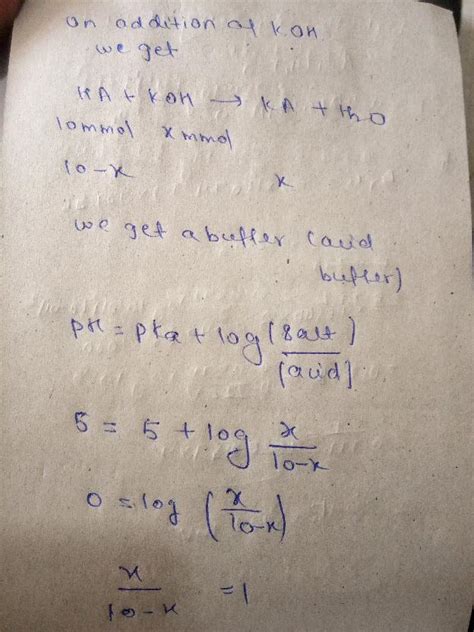 on addition of KOH
we get
HA + KOH → KA + H2O
10mmol x mmol
10-x x
we get a buffer (acid
buffer)
pH = pKa + log [salt]
[acid]
5 = 5 + log x
10-x
0 = log (x
10-x)
x
10-x = 1